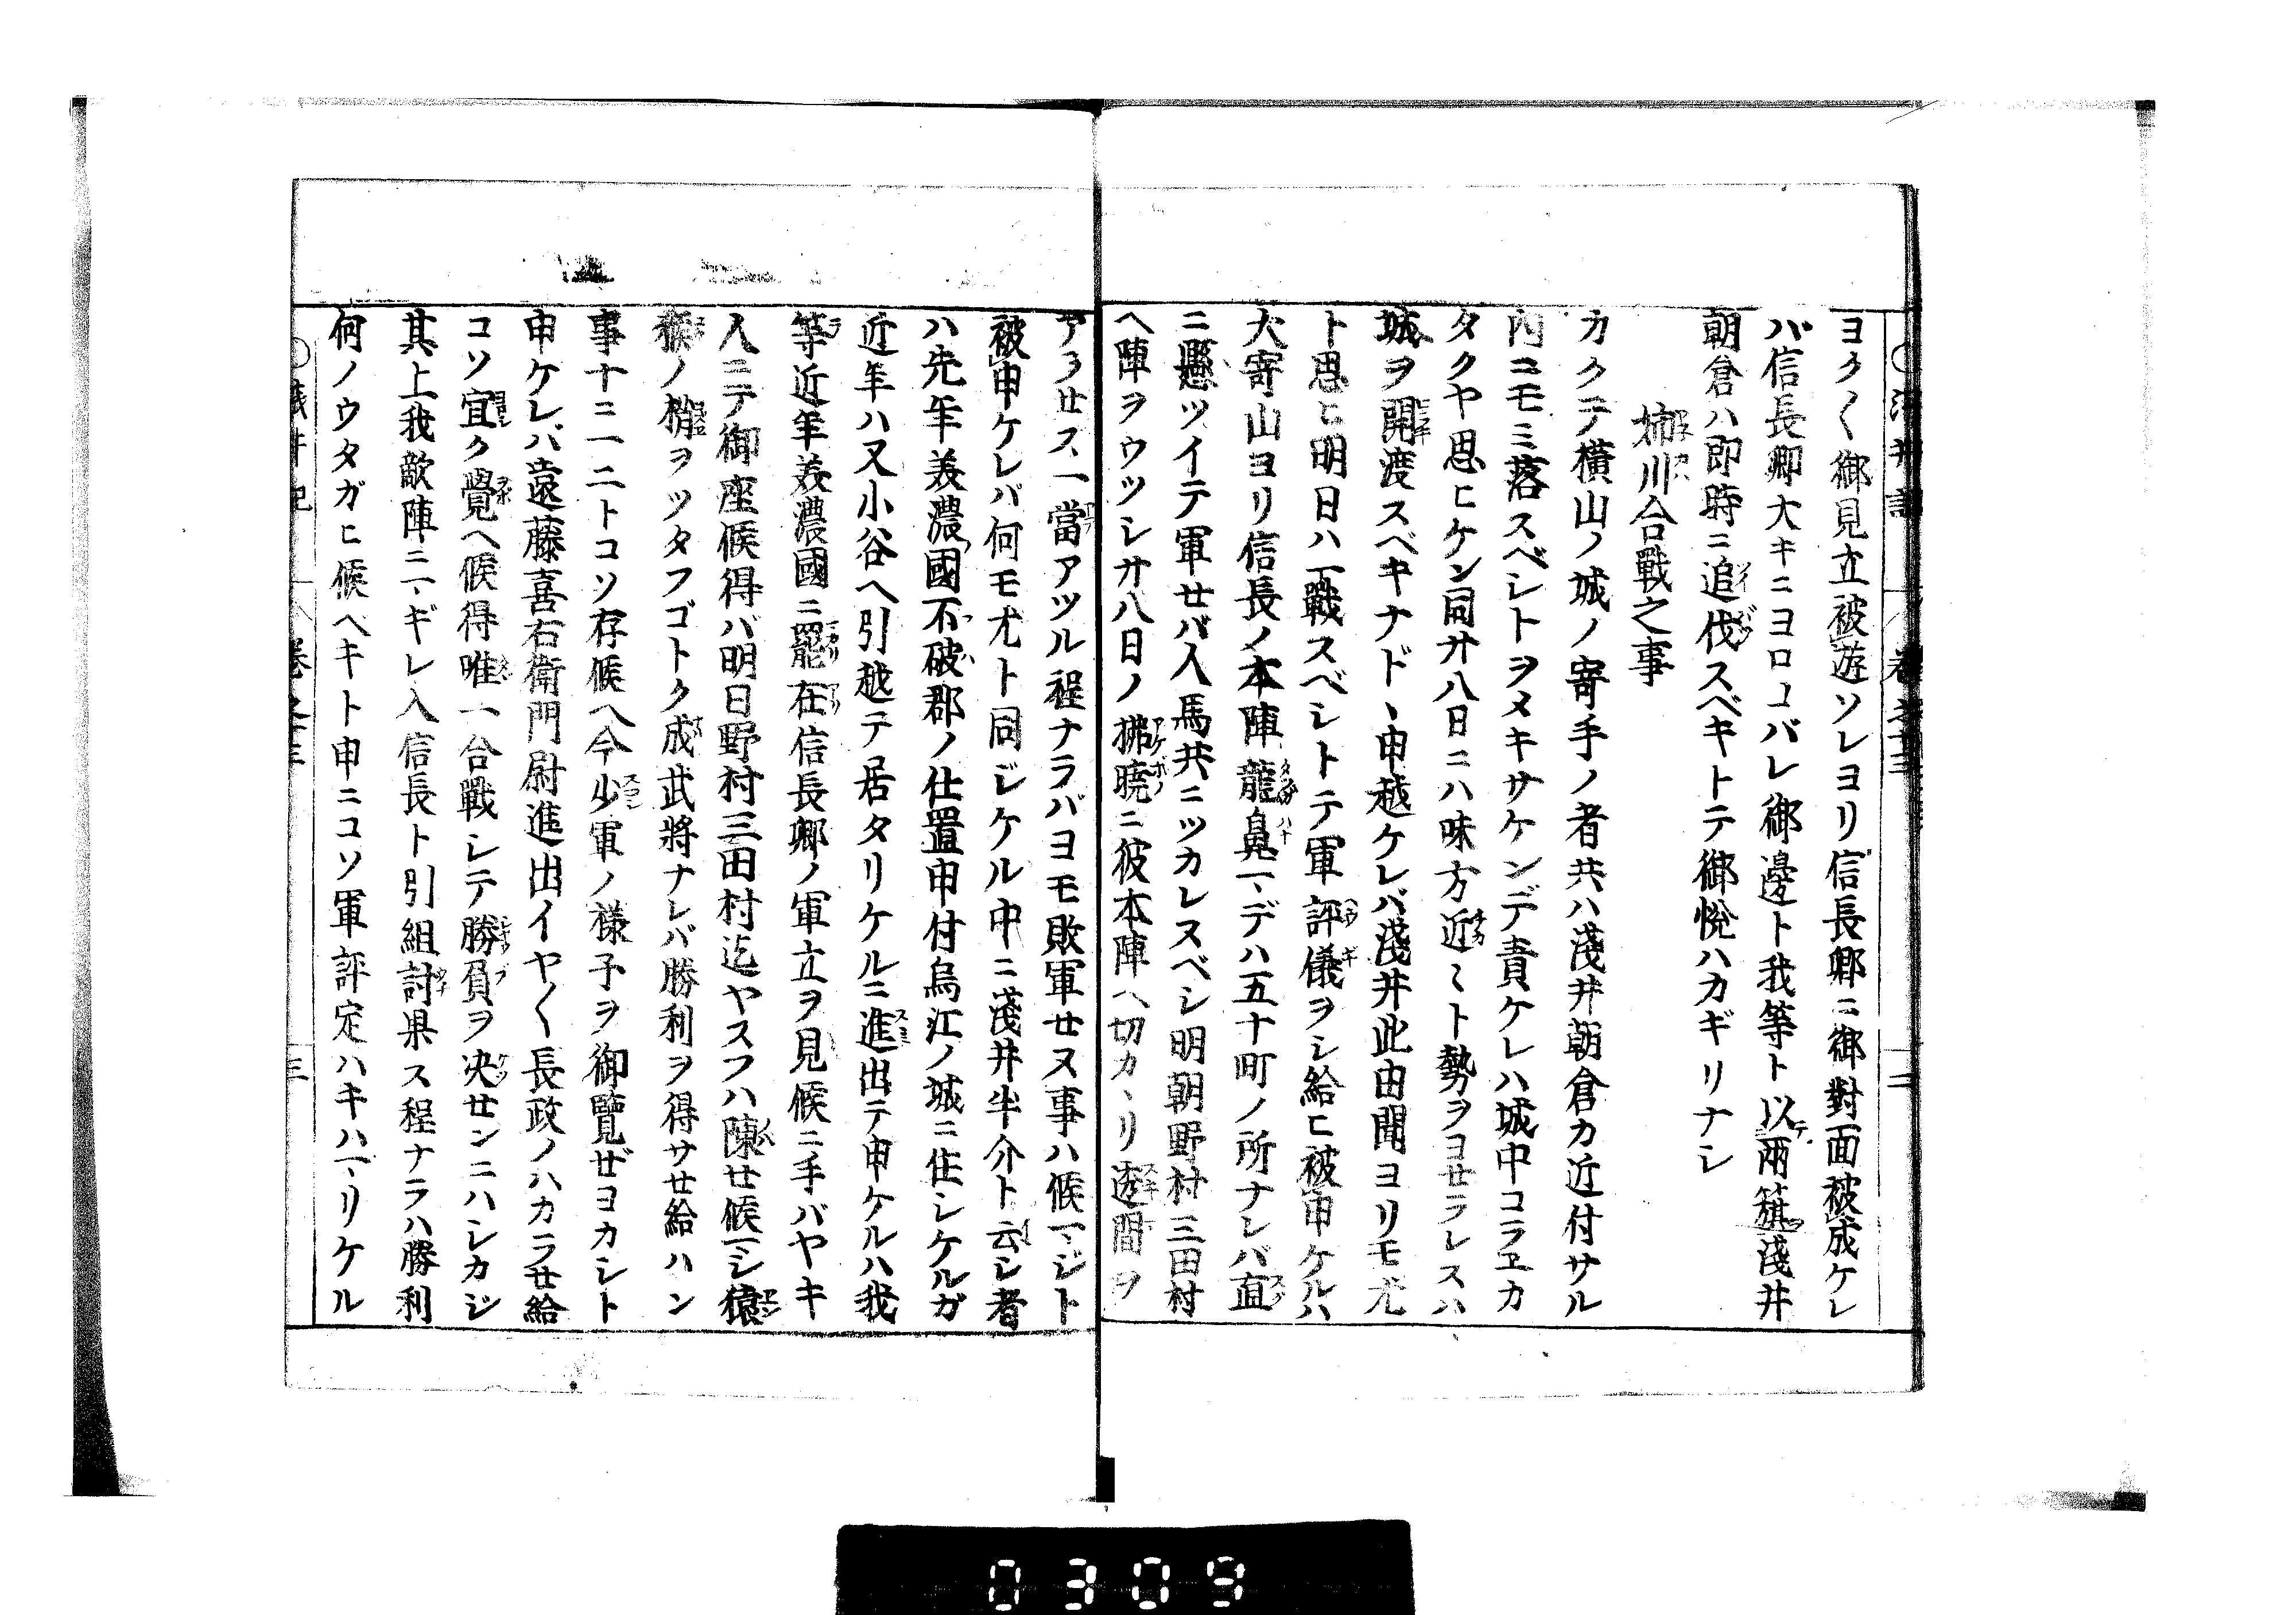 ヨク〱御見立被遊ソレヨリ信長卿ニ御對面被成ケレ
バ信長卿大キニヨロコバレ御邊ト我等ト以兩簱淺井
朝倉ハ即時ニ追伐スベキトテ御悦ハカギリナシ
姉川合戰之事
カクテ横山ノ城ノ寄手ノ者共ハ淺井朝倉カ近付サル
内ニモミ落スベシトヲメキサケンデ責ケレハ城中コラエカ
タクヤ思ヒケン同廿八日ニハ味方近〻ト勢ヲヨセラレスハ
城ヲ開渡スベキナド、申越ケレバ淺井此由聞ヨリモ尤
ト思ヒ明日ハ一戰スベシトテ軍評儀ヲシ給ヒ被申ケルハ
大寄山ヨリ信長ノ本陣龍鼻マデハ五十町ノ所ナレバ直
ニ懸ツイテ軍セバ人馬共ニツカレスベシ明朝野村三田村
ヘ陣ヲウツシ廿八日ノ拂曉ニ彼本陣ヘ切カヽリ透間ヲ
アラセス一當アツル程ナラバヨモ敗軍セヌ事ハ候マジト
被申ケレバ何モ尤ト同ジケル中ニ淺井半介ト云シ者
ハ先年美濃國不破郡ノ仕置申付烏江ノ城ニ住シケルガ
近年ハ又小谷ヘ引越テ居タリケルニ進出テ申ケルハ我
等近年美濃國ニ罷在信長卿ノ軍立ヲ見候ニ手バヤキ
人ニテ御座候得バ明日野村三田村迄ヤスフハ陳セ候マシ猿
猴ノ梢ヲツタフゴトク成武將ナレバ勝利ヲ得サセ給ハン
事十ニ一二トコソ存候ヘ今少軍ノ様子ヲ御覽ゼヨカシト
申ケレバ遠藤喜右衛門尉進出イヤ〱長政ノハカラセ給
コソ宜ク覺ヘ候得唯一合戰シテ勝負ヲ决センニハシカジ
其上我敵陣ニマギレ入信長ト引組討果ス程ナラハ勝利
何ノウタガヒ候ヘキト申ニコソ軍評定ハキハマリケル
卷之三
三